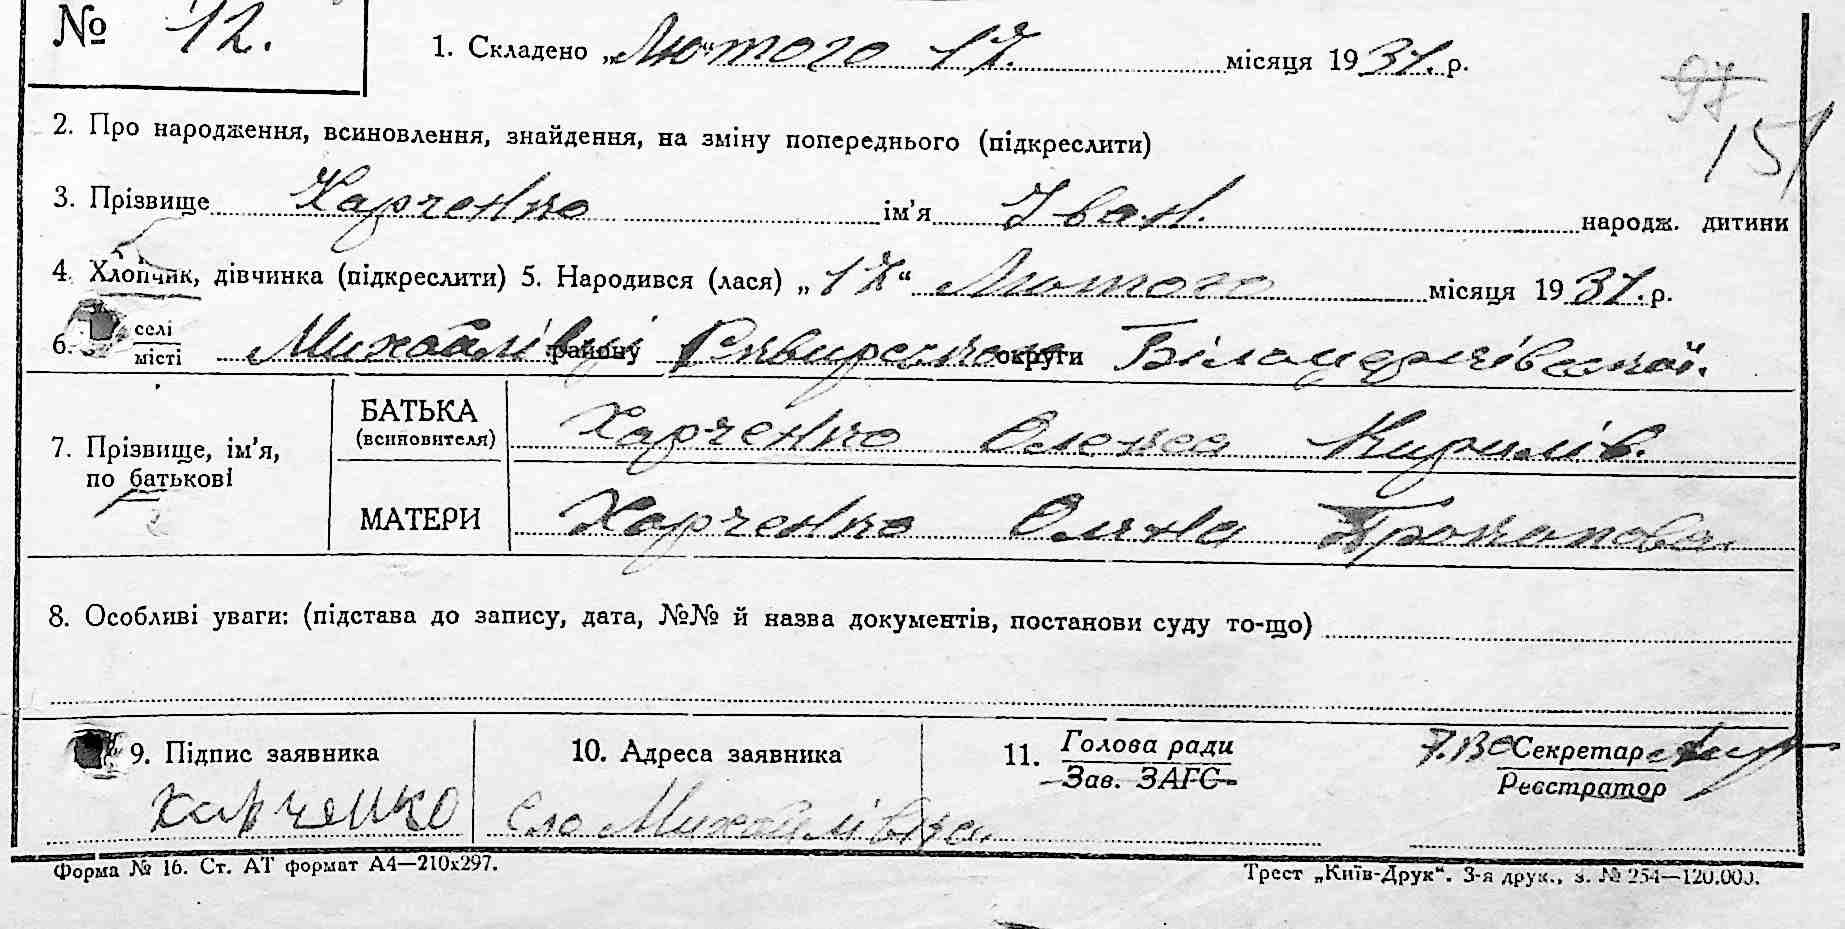 № 12.
1. Складено „Лютого 17. місяця 1931. р.
97
151
2. Про народження, всиновлення, знайдення, на зміну попереднього (підкреслити)
3. Прізвище Харченко ім'я Іван. народж. дитини
4. Хлопчик, дівчинка (підкреслити) 5. Народився (лася) „17“ Лютого місяця 1931. р.
6. селі
місті Михайлівці району Сквирського округи Білоцерківської.
7. Прізвище, ім'я, по батькові
БАТЬКА (всиновителя) Харченко Олекса Кирилів.
МАТЕРИ Харченко Оляна Прокопова.
8. Особливі уваги: (підстава до запису, дата, №№ й назва документів, постанови суду то-що)
9. Підпис заявника
Харченко
10. Адреса заявника
Село Михайлівка.
11. Голова ради
Зав. ЗАГС
Секретар
Реєстратор
Форма № 16. Ст. АТ формат А4—210x297.
Трест „Київ-Друк“. 3-я друк., з. № 254—120.000.